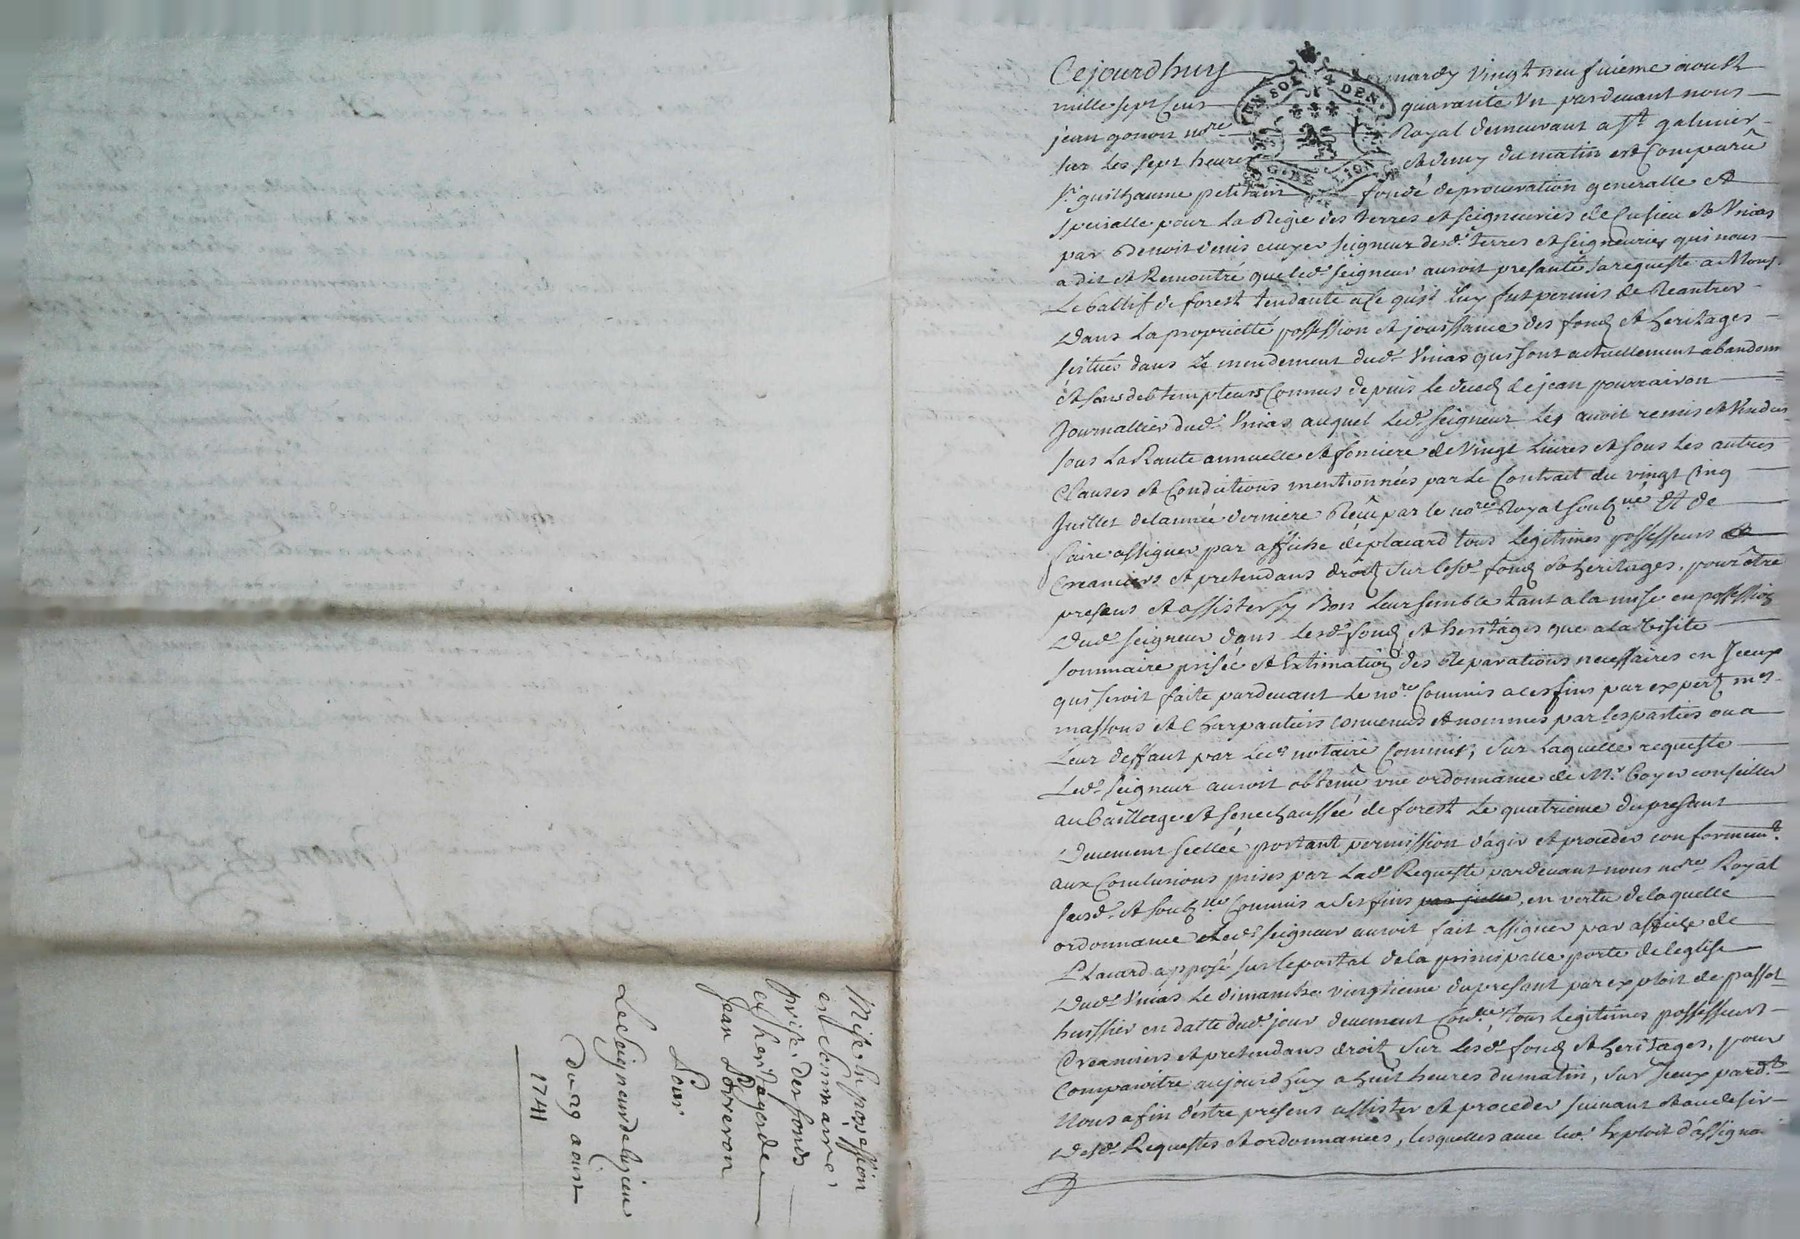 Mise En possession
et sommaire
prise, des fonds
et heritages de
Jean Porreron
Pour
Le Seigneur de Cuzieu
Du 29 aoust
1741
Cejourdhuy mardy vingt neufvieme aoust
mille sept cens quarante un pardevant nous
jean gonon no.re Royal demeurant a S.t galmier
sur les sept heures et demy du matin est Comparû
S.r guilhaume petitain fondé de procuration generalle et
specialle pour La Regie des terres et seigneuries de Cusieu et Unias
par benoit denis ecuyer seigneur desd. terres et seigneuries qui nous
a dit et Remontré que led. seigneur auroit presanté sa requeste a Mons.
Le baillif de forest tendante a ce qu'il luy fut permis de Reantrer
Dans La proprietté possession et jouissance des fondz et heritages
scitués dans Le mendement dud. Unias qui sont actuellement abandonn
és et sans detempteurs Connus depuis le decedz de jean pourrairon
Journallier dud. Unias auquel led. seigneur les avoit remis et Vendus
sous La Rante annuelle et fonciere de Vingt Livres et sous les autres
Clauses et Conditions mentionnées par Le Contrait du vingt Cinq
Juillet de lannée derniere Reçû par le no.re Royal soubz.né Et de
faire assigner par affiche de placard tous Legitimes possesseurs
Creanciers et pretendans droitz sur lesd. fondz et heritages, pour être
presens et assister sy Bon Leur semble tant a la mise en possession
Dud. seigneur dans Lesd. fondz et heritages que a la Visite
sommaire prisée et Estimation des Reparations necessaires en Jceux
qui seroit faite pardevant Le no.re Commis a ces fins par expertz m.es
massons et Charpantiers convenus et nommés par les parties ou a
Leur deffaut par Led. notaire Commis, sur Laquelle requeste
Led. seigneur auroit obtenû une ordonnance de M.r Boyer conseiller
au baillage et senechaussée de forest Le quatrieme du presant
Duement scellée portant permission d'agir et proceder conformem.t
aux Conclusions prises par Lad. Requeste pardevant nous no.re Royal
susd. et soubz.né Commis a ses fins, en vertu de laquelle
ordonnance Led. seigneur auroit fait assigner par affiche de
Placard apposé sur le portal de la principalle porte de leglise
Dud. Unias Le dimanche vingtieme du presant par exploit de passot
huissier en datte dud. jour duement Con.llé tous legitimes possesseurs
Creanciers et pretendans droitz sur Lesd. fondz et heritages, pour
Comparoitre aujourdhuy a huit heures du matin, sur Jceux pard.t
Nous afin d'estre presens assister et proceder suivant et au desir
Desd. Requestes et ordonnances, lesquelles avec led. Exploit d'assigna